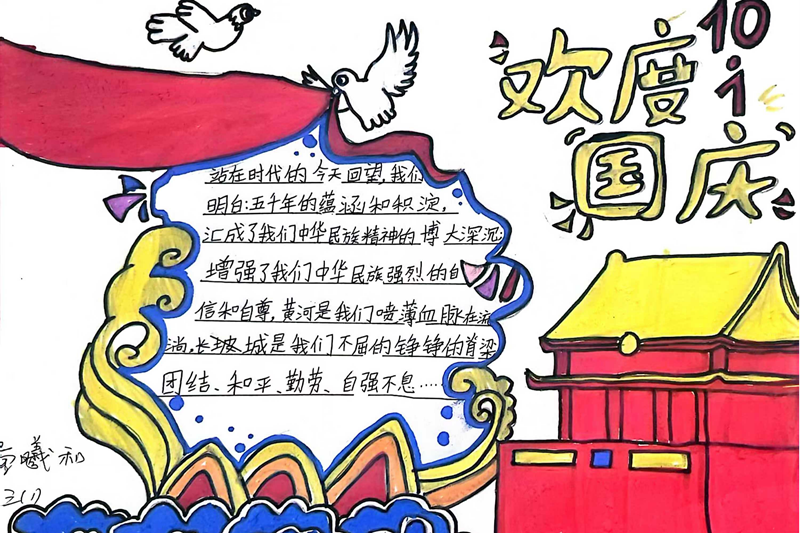 10.1
欢度
国庆
站在时代的今天回望,我们
明白:五千年的蕴涵和积淀,
汇成了我们中华民族精神的博大深沉
增强了我们中华民族强烈的自
信和自尊,黄河是我们喷薄血脉在流
淌,长城是我们不屈的铮铮的脊梁
团结、和平、勤劳、自强不息……
曦和
三(1)